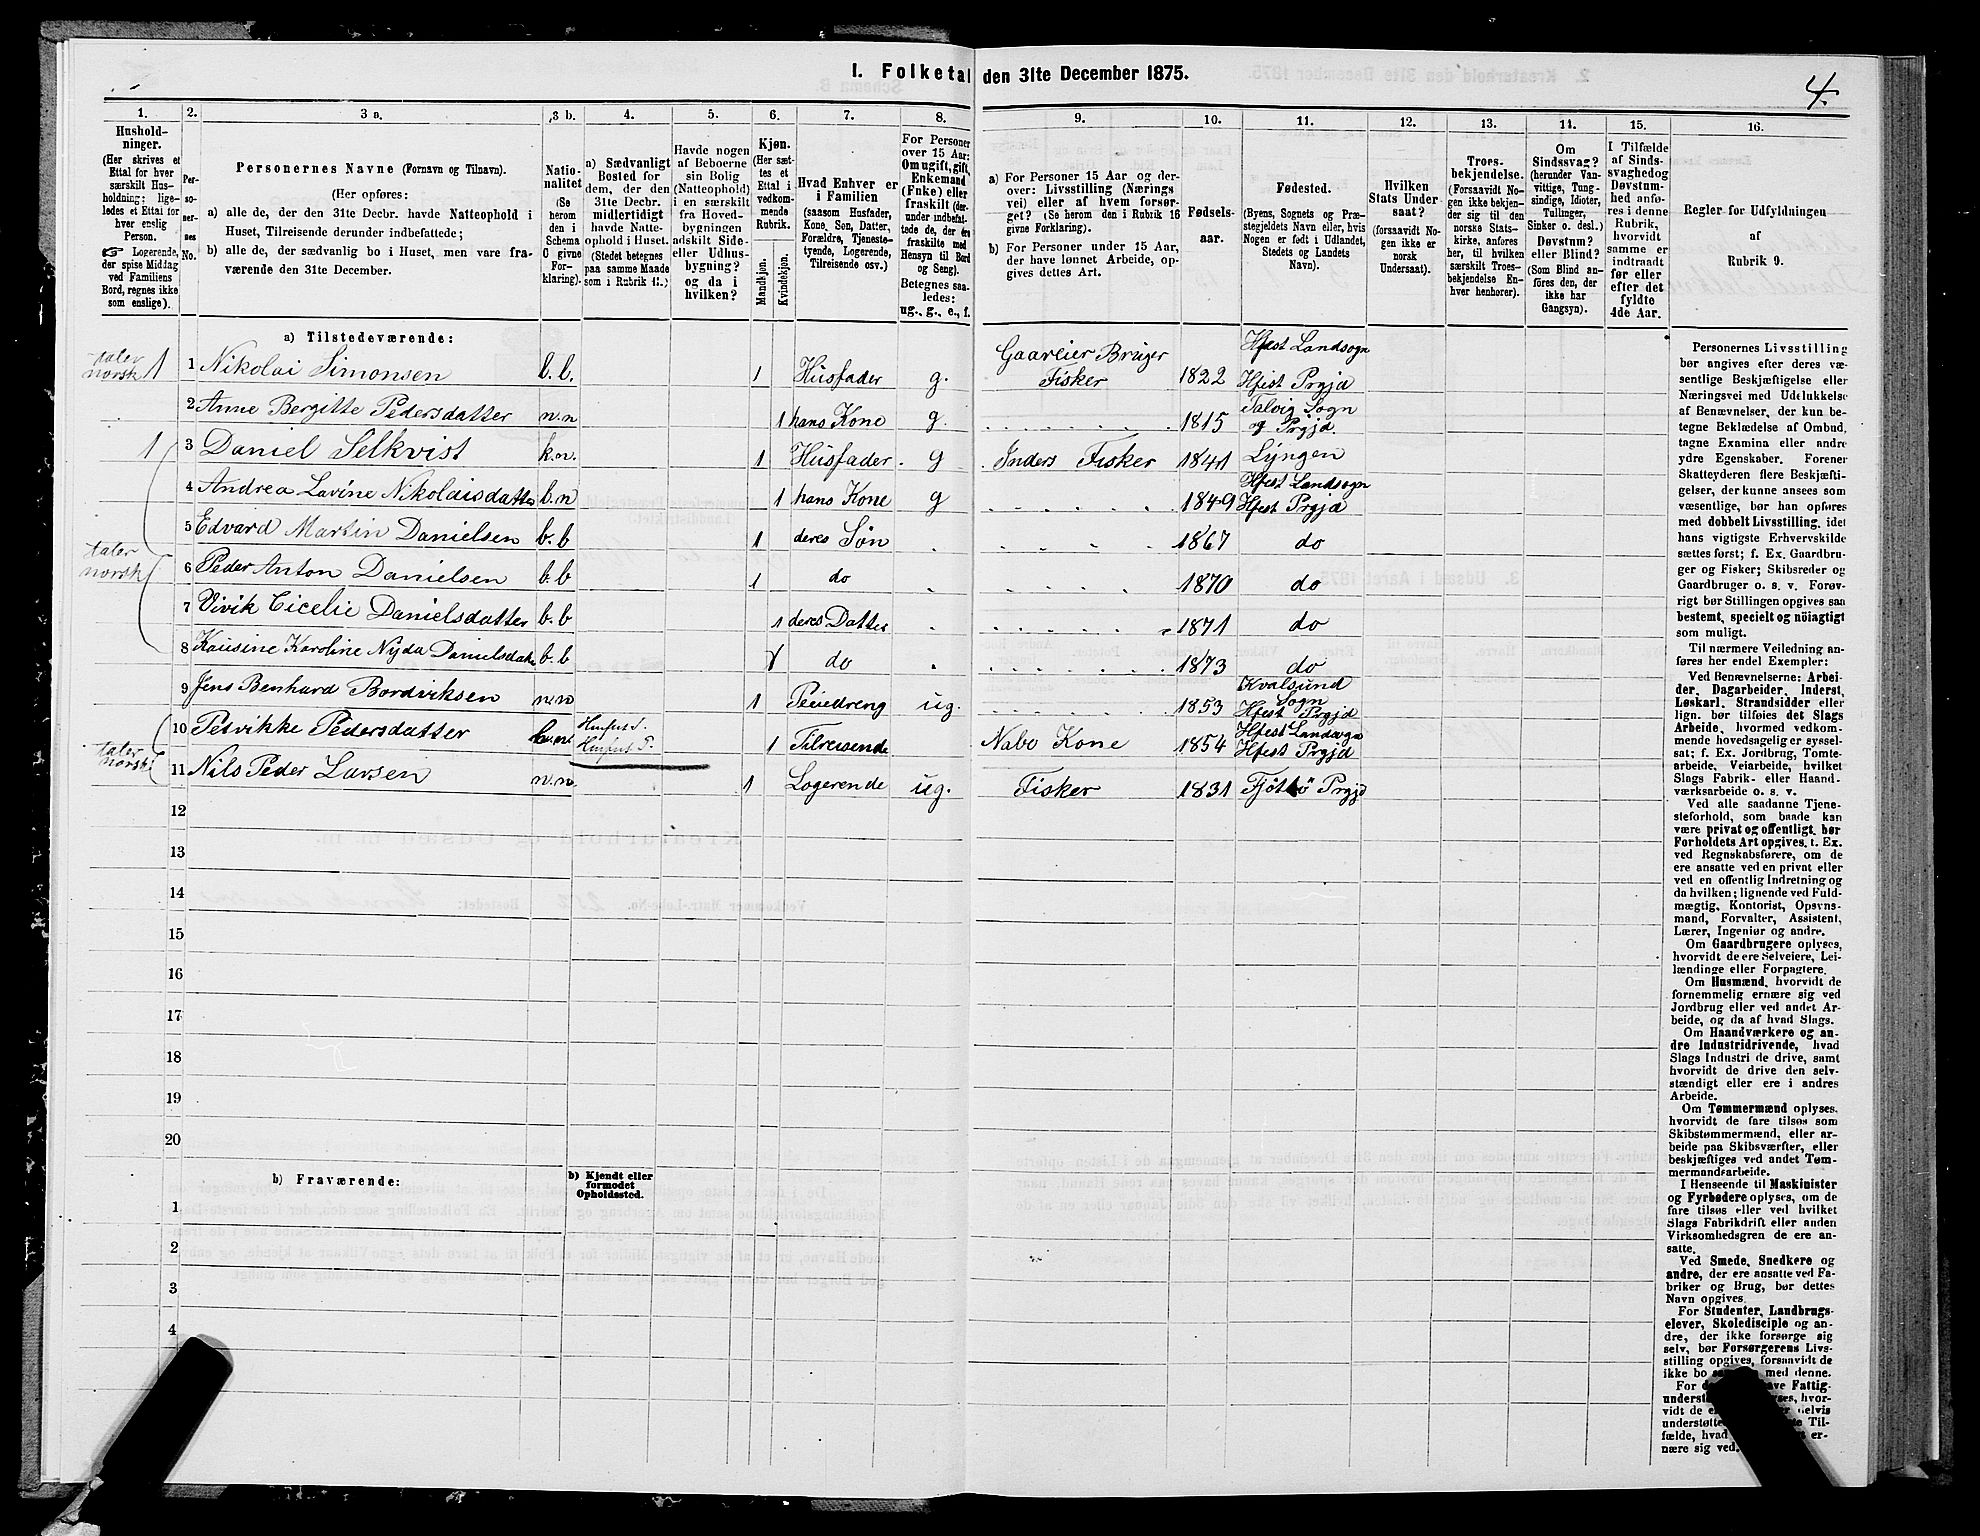 I. Folketal den 31te December 1875.
4.
1. 2. 3 a. 3 b. 4. 5. 6. 7. 8. 9. 10. 11. 12. 13. 14. 15. 16.
Hushold-
ninger.
(Her skrives et
Ettal for hver
særskilt Hus-
holdning; lige-
ledes et Ettal for
hver enslig
Person.
☞ Logerende,
der spise Middag
ved Familiens
Bord, regnes ikke
som enslige).
Per-
soner-
nes
No.
Personernes Navne (Fornavn og Tilnavn).
(Her opføres:
a) alle de, der den 31te Decbr. havde Natteophold i
Huset, Tilreisende derunder indbefattede;
b) alle de, der sædvanlig bo i Huset, men vare fra-
værende den 31te December.
Natio-
nalitet
(Se
herom
den i
Schema
C givne
For-
klaring).
a) Sædvanligt
Bosted for
dem, der den
31te Decbr.
midlertidigt
havde Natte-
ophold i Huset.
(Stedet betegnes
paa samme Maade
som i Rubrik 11.)
Havde nogen
af Beboerne
sin Bolig
(Natteophold)
i en særskilt
fra Hoved-
bygningen
adskilt Side-
eller Udhus-
bygning?
og da i
hvilken?
Kjøn.
(Her sæt-
tes et
Ettal i
vedkom-
mende
Rubrik.
Mandkjøn.
Kvindekjøn.
Hvad Enhver er
i Familien
(saasom Husfader,
Kone, Søn, Datter,
Forældre, Tjeneste-
tyende, Logerende,
Tilreisende osv.)
For Personer
over 15 Aar:
Omugift, gift,
Enkemand
(Enke) eller
fraskilt (der-
under indbefat-
tede de, der ere
fraskilte med
Hensyn til Bord
og Seng).
Betegnes saa-
ledes:
ug., g., e., f.
a) For Personer 15 Aar og der-
over: Livsstilling (Nærings
vei) eller af hvem forsør-
get? (Se herom den i Rubrik 16
givne Forklaring).
b) For Personer under 15 Aar,
der have lønnet Arbeide, op-
gives dettes Art.
Fødsels-
aar.
Fødested.
(Byens, Sognets og Præ-
stegjeldets Navn eller, hvis
Nogen er født i Udlandet,
Stedets og Landets
Navn).
Hvilken
Stats Under
saat?
(forsaavidt No-
gen ikke er
norsk
Undersaat).
Troes-
bekjendelse.
(Forsaavidt No-
gen ikke bekjen-
der sig til den
norske Stats-
kirke, anføres
her, til hvilken
særskilt Troes-
bekjendelse En-
hver henhører).
Om
Sindssvag?
(herunder Van-
vittige, Tung-
sindige, Idioter,
Tullinger,
Sinker o. desl.)
Døvstum?
eller Blind?
(Som Blind an-
føres den, der
ikke har
Gangsyn).
I Tilfælde
af Sinds-
svaghed og
Døvstum-
hed anfø-
res i denne
Rubrik,
hvorvidt
samme er
indtraadt
før eller
efter det
fyldte
4de Aar.
Regler for Udfyldningen
af
Rubrik 9.
a) Tilstedeværende:
taler norsk 1 1 Nikolai Simonsen b. b. 1 Husfader g. Gaareier Bruger Fisker 1822 Hfest Landsogn Hfest Prgjd
2 Anne Bergitte Pedersdatter n.n 1 hans Kone g. 1815 Talvig Sogn og Prgjd.
1 3 Daniel Selkvist k.n. 1 Husfader g Inders Fisker 1841 Lyngen
4 Andrea Lavine Nikolaisdatter b.n 1 hans Kone g 1849 Hfest Landsogn Hfest Prgjd
5 Edvard Martin Danielsen b. b 1 deres Søn 1867 do
taler norsk 6 Peder Anton Danielsen b. b 1 do 1870 do
7 Vivik Cicelie Danielsdatter b. b 1 deres Datter 1871 do
8 Karoline Nyda b. b do 1873 do
9 Jens Benhard Bordviksen n.n 1 ug. 1853 Kvalsund Sogn Hfest Prgjd
10 Petvikke Pedersdatter 1 Tilreisende Nabo Kone 1854 Hfest Landsogn Hfest Prgjd
taler norsk 11 Nils Peder Larsen n.n. 1 Logerende ug. Fisker 1831 Prgjd
12
13
14
15
16
17
18
19
20
b) Fraværende:
b) Kjendt eller
formodet
Opholdssted.
1
2
3
4
Personernes Livsstilling
bør angives efter deres væ-
sentlige Beskjæftigelse eller
Næringsvei med Udelukkelse
af Benævnelser, der kun be-
tegne Beklædelse af Ombud,
tagne Examina eller andre
ydre Egenskaber. Forener
Skatteyderen flere Beskjæfti-
gelser, der kunne ansees som
væsentlige, bør han opføres
med dobbelt Livsstilling, idet
hans vigtigste Erhvervskilde
sættes først; f. Ex. Gaardbru-
ger og Fisker; Skibsreder og
Gaardbruger o. s. v. Forøv-
rigt bør Stillingen opgives saa
bestemt, specielt og nöiagtigt
som muligt.
Til nærmere Veiledning an-
føres her endel Exempler:
Ved Benævnelserne: Arbei-
der, Dagarbeider, Inderst,
Løskarl, Strandsidder eller
lign. bør tilføies det Slags
Arbeide, hvormed vedkom-
mende hovedsagelig er syssel-
sat; f. Ex. Jordbrug, Tomte-
arbeide, Veiarbeide, hvilket
Slags Fabrik- eller Haand-
værksarbeide o. s. v.
Ved alle saadanne Tjene-
steforhold, som baade kan
være privat og offentligt, bør
Forholdets Art opgives, t. Ex.
ved Regnskabsførere, om de
ere ansatte ved en privat eller
ved en offentlig Indretning og
da hvilken; lignende ved Fuld-
mægtig, Kontorist, Opsyns-
mand, Forvalter, Assistent,
Lærer, Ingeniør og andre.
Om Gaardbrugere oplyses,
hvorvidt de ere Selveiere, Lei-
lændinge eller Forpagtere.
Om Husmænd, hvorvidt de
fornemmelig ernære sig ved
Jordbrug eller ved andet Ar-
beide, og da af hvad Slags.
Om Haandværkere og an-
dre Industridrivende, hvad
Slags Industri de drive, samt
hvorvidt de drive den selv-
stændigt eller ere i andres
Arbeide.
Om Tømmermænd oplyses,
hvorvidt de fare tilsøs som
Skibstømmermænd, eller ar-
beide paa Skibsværfter, eller
beskjæftiges ved andet Tøm-
mermandsarbeide.
I Henseende til Maskinister
og Fyrbødere oplyses, om de
fare tilsøs eller ved hvilket
Slags Fabrikdrift eller anden
Virksomhedsgren de ere an-
satte.
Ved Smede, Snedkere og
andre, der ere ansatte ved Fa-
briker og Brug, bør dettes
Navn opgives.
For Studenter, Landbrugs-
elever, Skoledisciple og an-
dre, der ikke forsørge sig
selv, bør Forsørgerens Livs-
stilling opgives, forsaavidt de
ikke bo med denne.
For Fattig-
hvor-
vidt de delvis
Til-
fælde, hvad er-
nære sig ved.